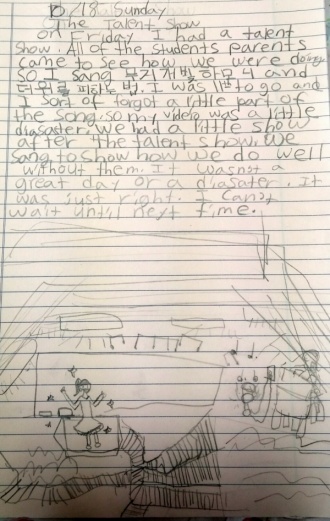 18 Sunday
The Talent Show
On Friday I had a talent
Show. All of the students parents
came to see how we were doing
So I sang 무지개빛 하모니 and
더위를 피하는 법. I was 11th to go and
I sort of forgot a little part of
the song. so my video was a little
diasater. We had a little show
after the talent show. We
sang to show how we do well
without them. It wasnot a
great day or a diasater. It
was just right. I canot
wait until next time.